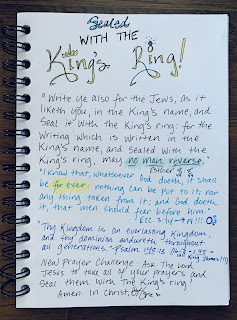 Sealed
WITH THE
King's Ring!
"Write ye also for the Jews, as it
liketh you, in the King's name, and
seal it with the King's ring: for the
writing which is written in the
King's name, and sealed with the
King's ring, may no man reverse."
Esther 8:8
"I know that, whatsoever God doeth, it shall
be for ever: nothing can be put to it, nor
any thing taken from it: and God doeth
it, that men should fear before him."
Ecc. 3:14
"Thy Kingdom is an everlasting Kingdom,
and thy dominion endureth throughout
all generations." -Psalm 145:13
New Prayer Challenge - Ask The Lord
Jesus to take all of your prayers and
seal them with The King's ring!
Amen. In Christ,